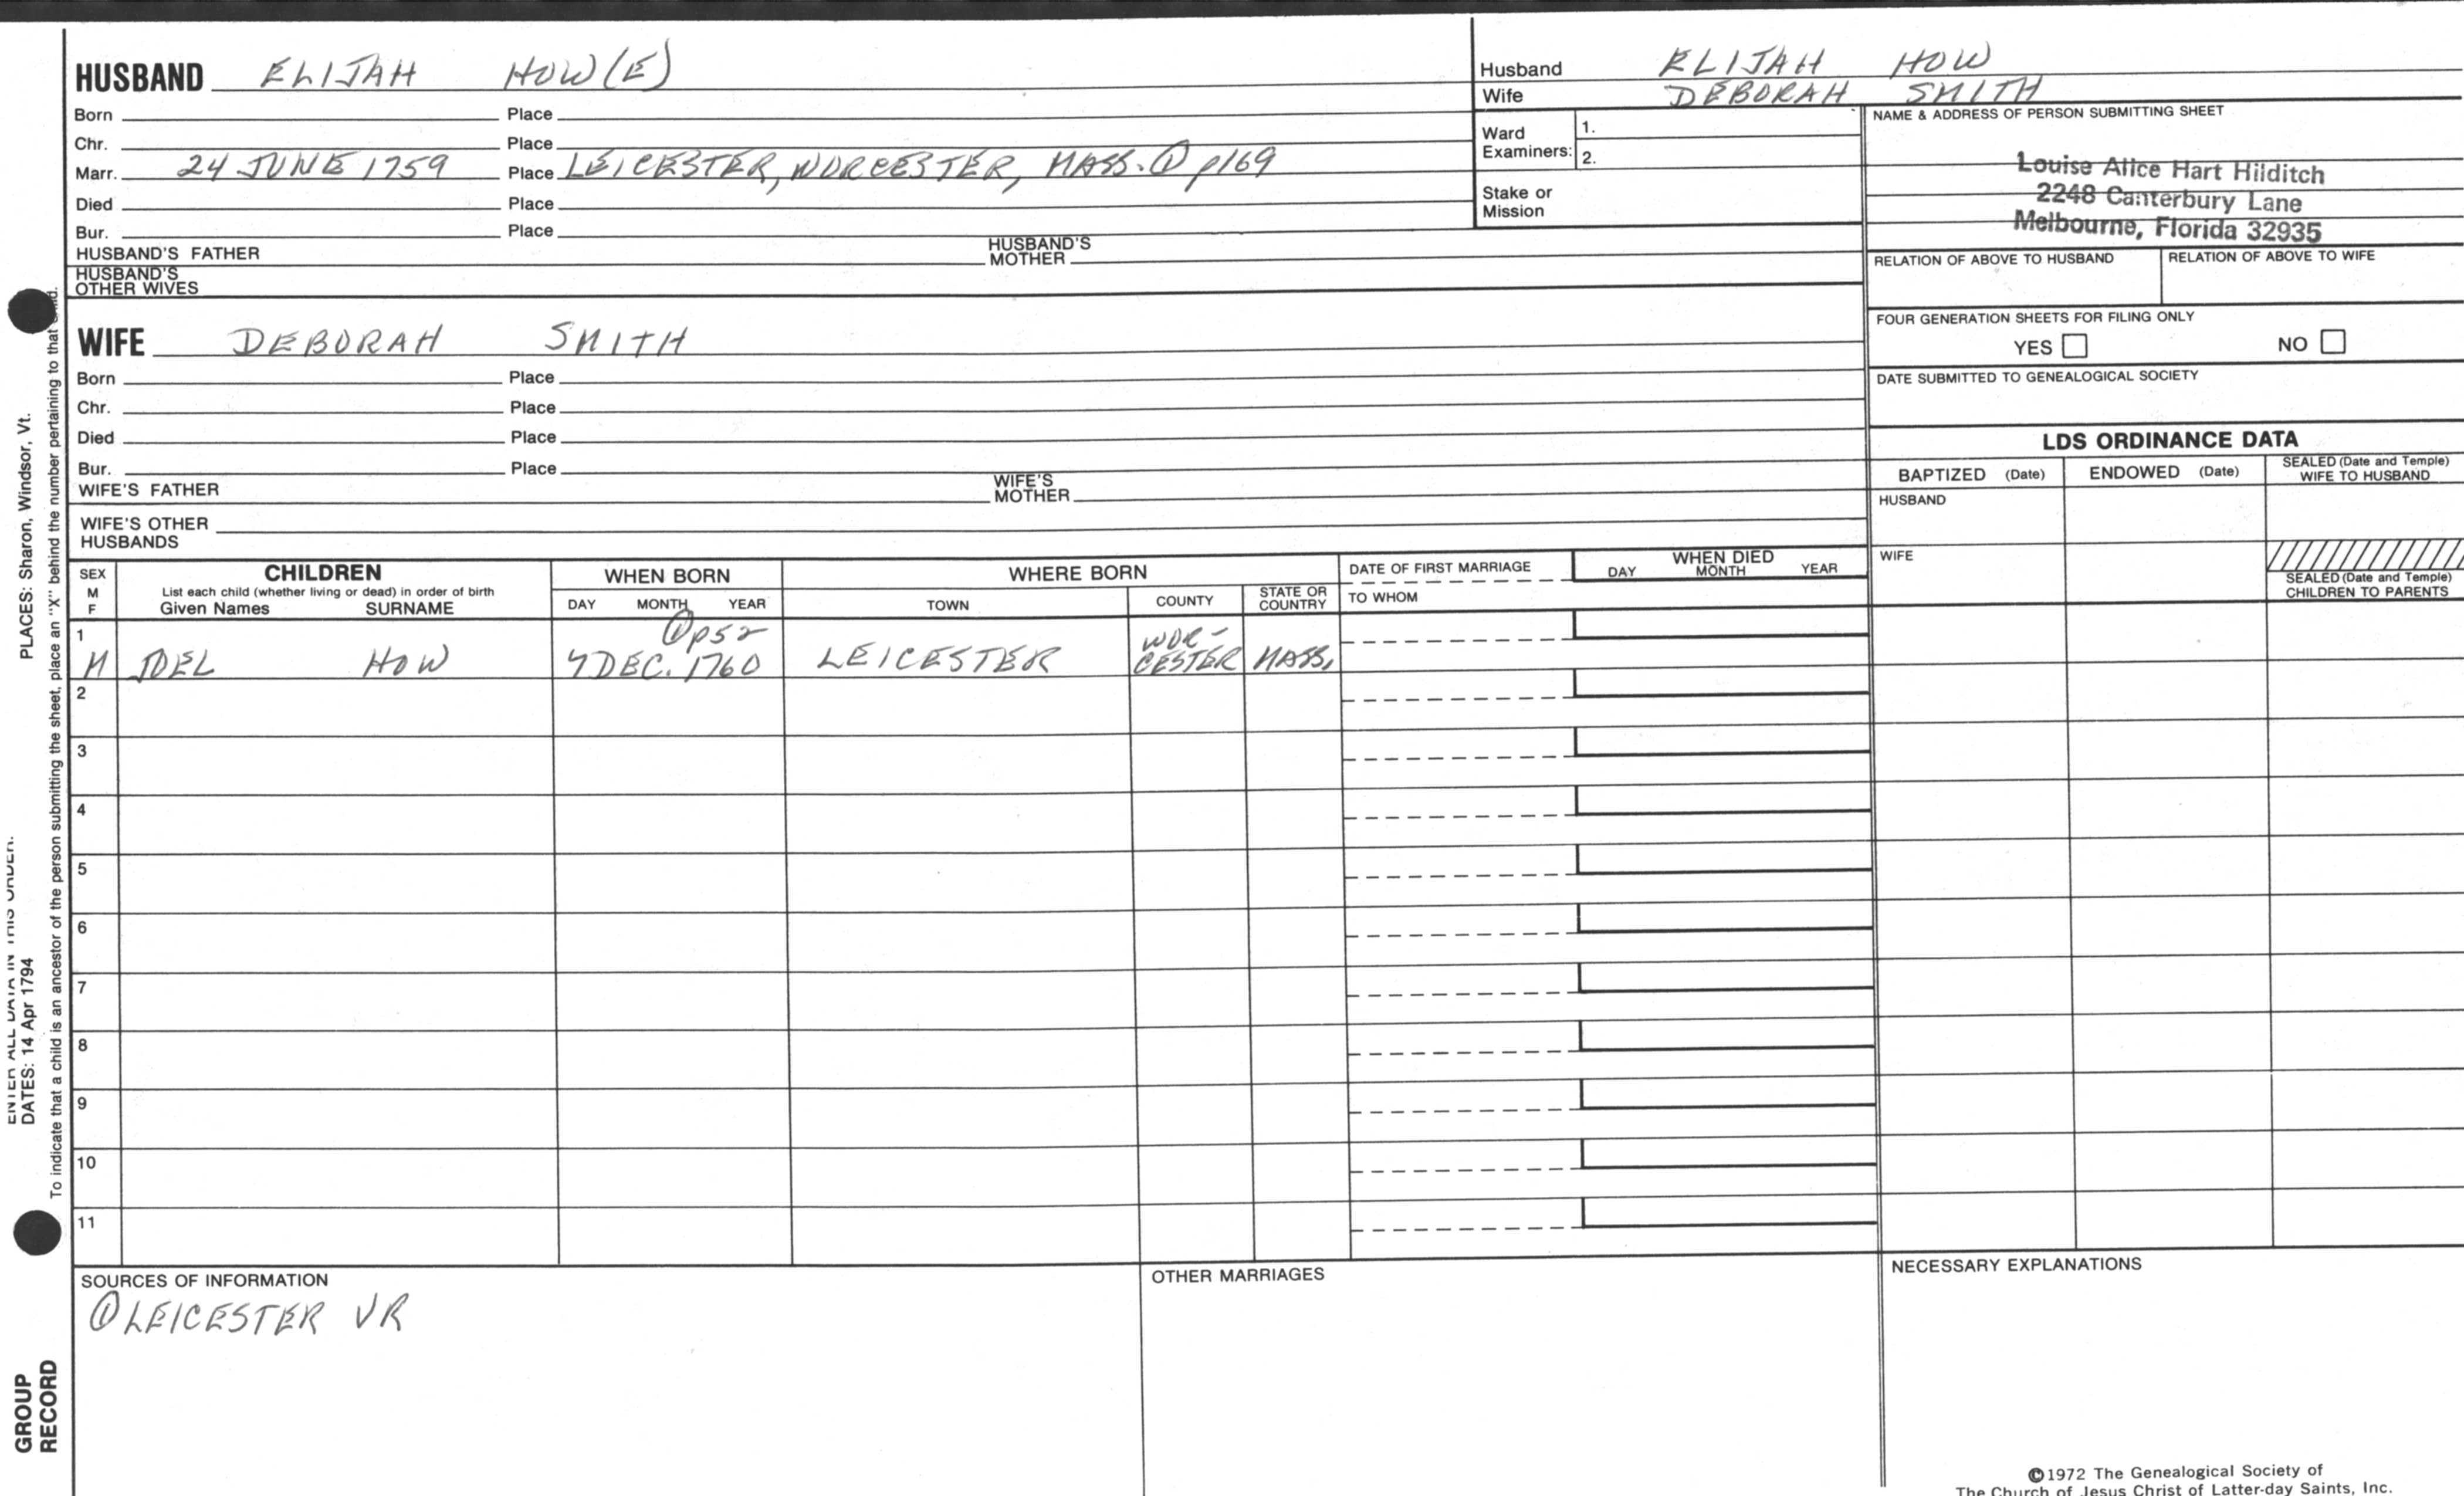 HUSBAND ELIJAH HOW(E)
Born Place
Chr. Place
Marr. 24 JUNE 1759 Place LEICESTER, WORCESTER, MASS. ① p169
Died Place
Bur. Place
HUSBAND'S FATHER HUSBAND'S MOTHER
HUSBAND'S OTHER WIVES
Husband ELIJAH HOW
Wife DEBORAH SMITH
Ward Examiners: 1.
2.
Stake or Mission
NAME & ADDRESS OF PERSON SUBMITTING SHEET
Louise Alice Hart Hilditch
2248 Canterbury Lane
Melbourne, Florida 32935
RELATION OF ABOVE TO HUSBAND RELATION OF ABOVE TO WIFE
FOUR GENERATION SHEETS FOR FILING ONLY
YES NO
DATE SUBMITTED TO GENEALOGICAL SOCIETY
WIFE DEBORAH SMITH
Born Place
Chr. Place
Died Place
Bur. Place
WIFE'S FATHER WIFE'S MOTHER
WIFE'S OTHER HUSBANDS
LDS ORDINANCE DATA
BAPTIZED (Date) ENDOWED (Date) SEALED (Date and Temple) WIFE TO HUSBAND
HUSBAND
WIFE
SEALED (Date and Temple) CHILDREN TO PARENTS
SEX M F
CHILDREN
List each child (whether living or dead) in order of birth
Given Names SURNAME
WHEN BORN
DAY MONTH YEAR
WHERE BORN
TOWN COUNTY STATE OR COUNTRY
DATE OF FIRST MARRIAGE
TO WHOM
WHEN DIED
DAY MONTH YEAR
1 ① p52 WOR-
M JOEL HOW 7 DEC. 1760 LEICESTER CESTER MASS.
2
3
4
5
6
7
8
9
10
11
SOURCES OF INFORMATION
① LEICESTER VR
OTHER MARRIAGES
NECESSARY EXPLANATIONS
©1972 The Genealogical Society of
The Church of Jesus Christ of Latter-day Saints, Inc.
GROUP
RECORD
ENTER ALL DATA IN THIS ORDER.
DATES: 14 Apr 1794 PLACES: Sharon, Windsor, Vt.
To indicate that a child is an ancestor of the person submitting the sheet, place an "X" behind the number pertaining to that child.